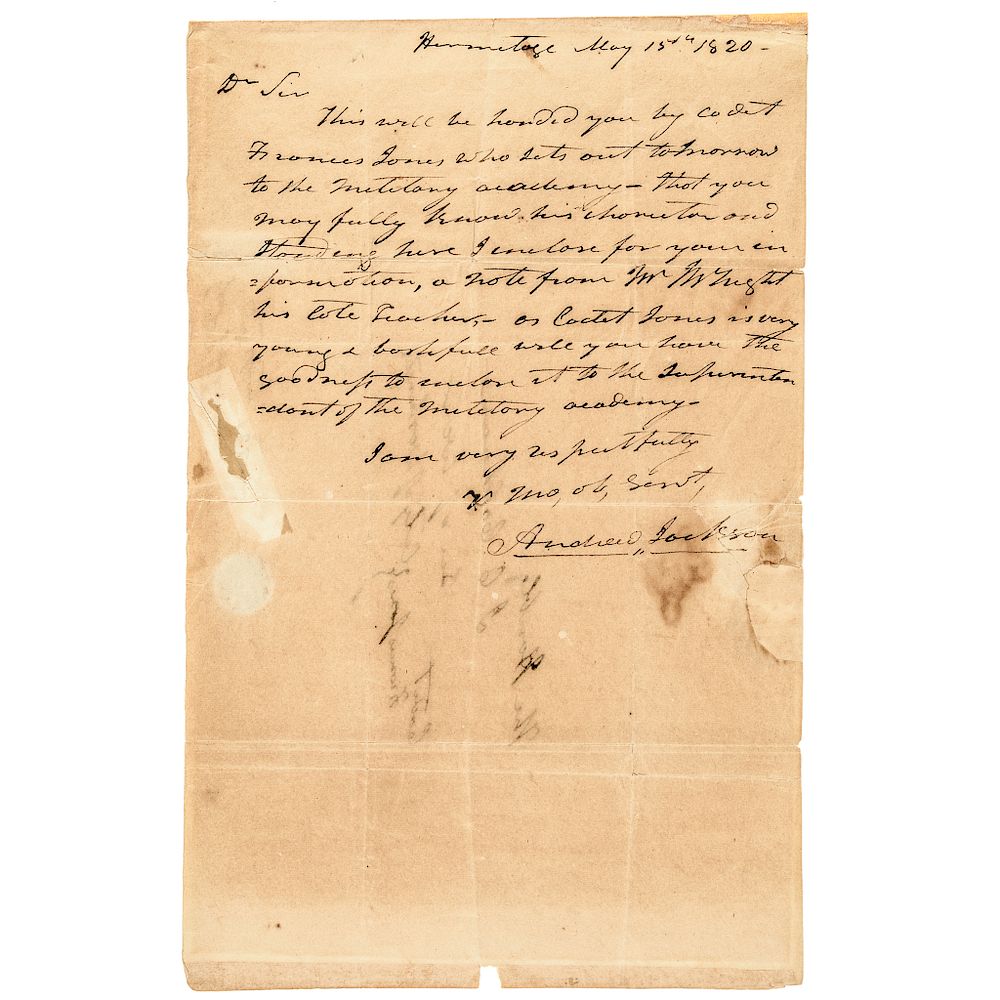 Hermitage May 15th 1820-
Dr Sir
This will be handed you by Cadet
Frances Jones who sets out tomorrow
to the Military academy- that you
may fully know his charector and
standing here I enclose for your in
=formation, a note from Mr
his late Teacher,- as Cadet Jones is very
young & bashfull will you have the
goodness to enclose it to the Superinten
=dant of the Military academy-
I am very respectfully
yr mo, ob, servt,
Andrew Jackson